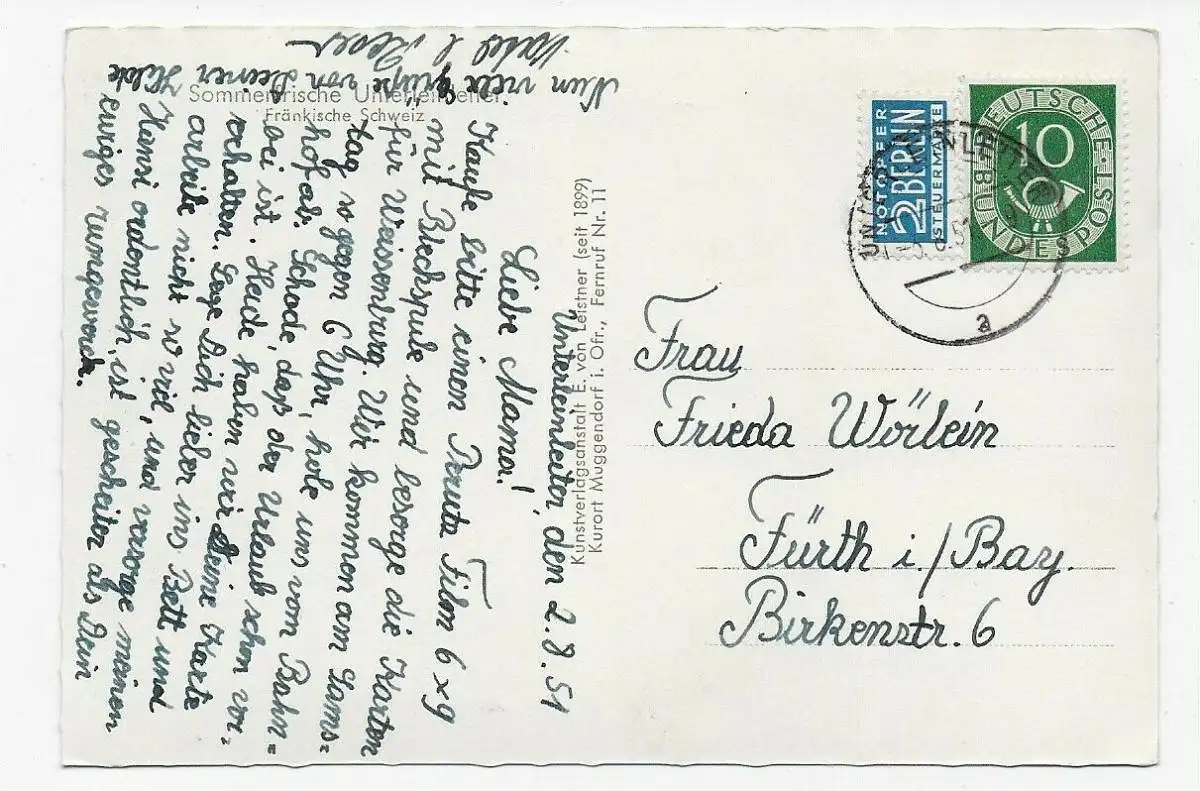 Sommerfrische Unterleinleiter
Fränkische Schweiz
Unterleinleiter, den 2.8.51
Liebe Mama!
Kaufe bitte einen Peruta Film 6x9
mit Blechspule und besorge die Karten
für Weissenburg. Wir kommen am Sams=
tag so gegen 6 Uhr, hole uns vom Bahn=
hof ab. Schade, daß der Urlaub schon vor=
bei ist. Heude haben wir Deine Karte
erhalten. Lege Dich lieber ins Bett und
arbeite nicht so viel, und versorge meinen
Hansi ordentlich, ist gescheiter als Dein
ewiges rumgewerch.
Nun viele Grüße von Deiner Hilde
Kunstverlagsanstalt E. von Leistner (seit 1899)
Kurort Muggendorf i. Ofr., Fernruf Nr. 11
NOTOPFER
2 BERLIN
STEUERMARKE
DEUTSCHE
10
BUNDESPOST
UNTERLEINLEITER
a
Frau
Frieda Wörlein
Fürth i./Bay.
Birkenstr. 6